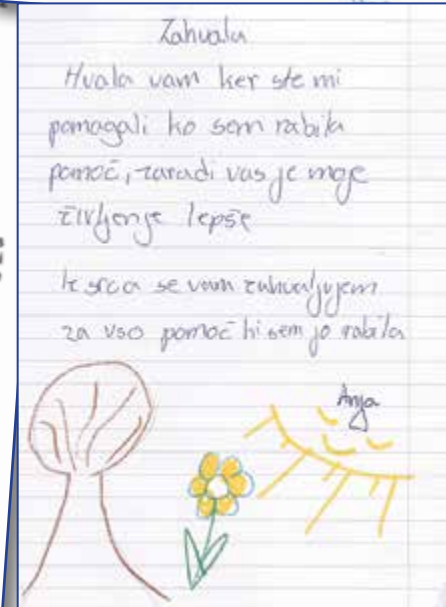 Zahvala
Hvala vam ker ste mi
pomagali ko sem rabila
pomoč, zaradi vas je moje
življenje lepše
Iz srca se vam zahvaljujem
za vso pomoč ki sem jo rabila
Anja